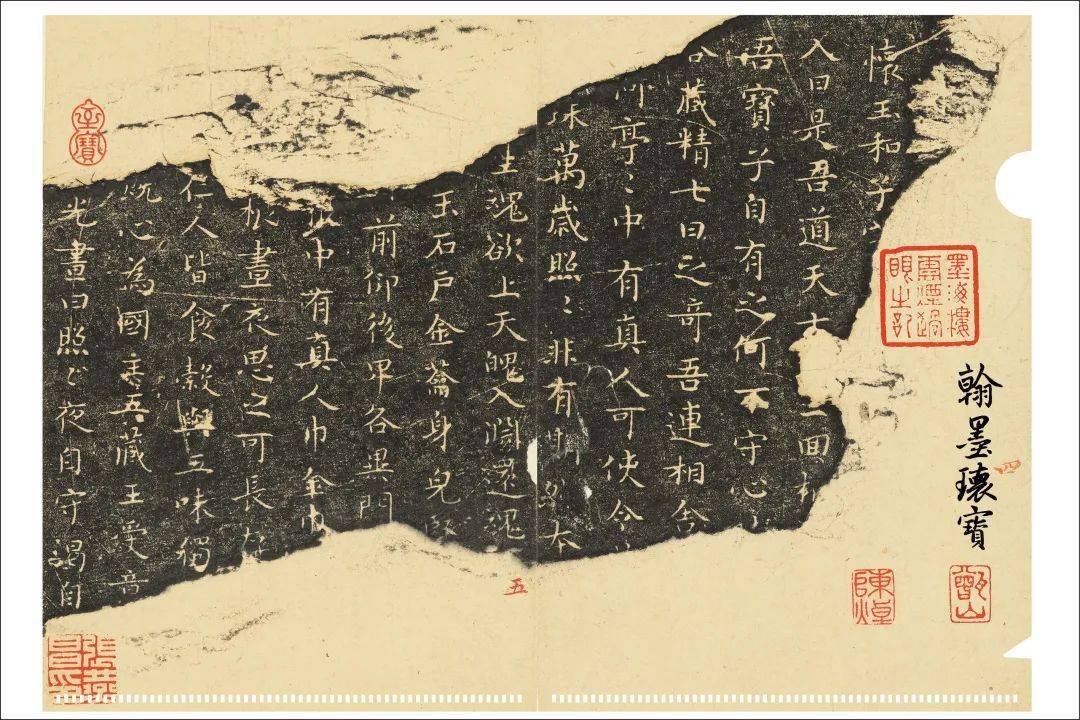 懷王和子
入曰是吾道天
面相
吾寶子自有之何不守心
藏精七日之奇吾連相舍
亭〻中有真人可使令
萬歲照〻非有
本
生魂欲上天魄入淵還魂
玉石戶金籥身皃堅
前仰後卑各異門
中有真人巾金巾
根晝夜思之可長存
仁人皆食穀與五味獨
心為國主五藏王受意
光晝日照〻夜自守渴自
翰墨瓌寶
四
五